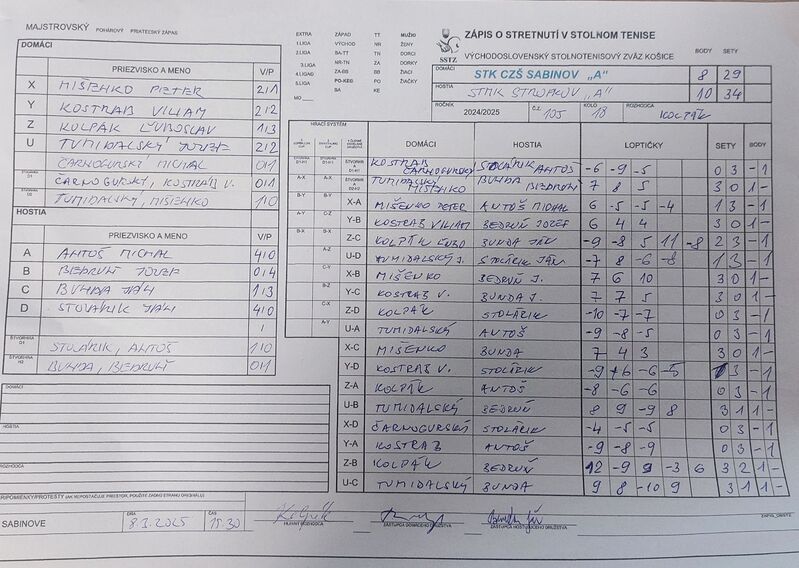 MAJSTROVSKÝ POHÁROVÝ PRIATEĽSKÝ ZÁPAS
DOMÁCI
PRIEZVISKO A MENO V/P
X MIŠENKO PETER 2/1
Y KOSTRAB VILIAM 2/2
Z KOLPÁK ĽUBOSLAV 1/3
U TUMIDALSKÝ JOZEF 2/2
ČARNOGURSKÝ MICHAL 0/1
ŠTVORHRA D1 ČARNOGURSKÝ, KOSTRAB V. 0/1
ŠTVORHRA D2 TUMIDALSKÝ, MIŠENKO 1/0
HOSTIA
PRIEZVISKO A MENO V/P
A ANTOŠ MICHAL 4/0
B BEDRUŇ JOZEF 0/4
C BUNDA JÁN 1/3
D STOLÁRIK JÁN 4/0
/
ŠTVORHRA STOLÁRIK, ANTOŠ 1/0
ŠTVORHRA H2 BUNDA, BEDRUŇ 0/1
DOMÁCI
HOSTIA
ROZHODCA
PRIPOMIENKY/PROTESTY (AK NEPOSTAČUJE PRIESTOR, POUŽITE ZADNÚ STRANU ORIGINÁLU)
SABINOVE DŇA 8.3.2025 ČAS 15.30 HLAVNÝ ROZHODCA ZÁSTUPCA DOMÁCEHO DRUŽSTVA ZÁSTUPCA HOSŤUJÚCEHO DRUŽSTVA
EXTRA ZÁPAD TT MUŽI
1.LIGA VÝCHOD NR ŽENY
2.LIGA BA-TT TN DORCI
3.LIGA NR-TN ZA DORKY
4.LIGA ZA-BB BB ŽIACI
5.LIGA PO-KE PO ŽIAČKY
BA KE
MO
ZÁPIS O STRETNUTÍ V STOLNOM TENISE
SSTZ VÝCHODOSLOVENSKÝ STOLNOTENISOVÝ ZVÄZ KOŠICE BODY SETY
DOMÁCI STK CZŠ SABINOV „A" 8 29
HOSTIA STMK STROPKOV „A" 10 34
ROČNÍK 2024/2025 Č.Z. 105 KOLO 18 ROZHODCA KOLPÁK
HRACÍ SYSTÉM DOMÁCI HOSTIA LOPTIČKY SETY BODY
KOSTRAB ČARNOGURSKÝ STOLÁRIK ANTOŠ -6 -9 -5 0 3 -1
TUMIDALSKÝ MIŠENKO BUNDA BEDRUŇ 7 8 5 3 0 1-
X-A MIŠENKO PETER ANTOŠ MICHAL 6 -5 -5 -4 1 3 -1
Y-B KOSTRAB VILIAM BEDRUŇ JOZEF 6 4 4 3 0 1-
Z-C KOLPÁK ĽUBO BUNDA JÁN -9 -8 5 11 -8 2 3 -1
U-D TUMIDALSKÝ J. STOLÁRIK JÁN -7 8 -6 -8 1 3 -1
X-B MIŠENKO BEDRUŇ J. 7 6 10 3 0 1-
Y-C KOSTRAB V. BUNDA J. 7 7 5 3 0 1-
Z-D KOLPÁK STOLÁRIK -10 -7 -7 0 3 -1
U-A TUMIDALSKÝ ANTOŠ -9 -8 -5 0 3 -1
X-C MIŠENKO BUNDA 7 4 3 3 0 1-
Y-D KOSTRAB V. STOLÁRIK -9 +6 -6 -5 3 -1
Z-A KOLPÁK ANTOŠ -8 -6 -6 0 3 -1
U-B TUMIDALSKÝ BEDRUŇ 8 9 -9 8 3 1 1-
X-D ČARNOGURSKÝ STOLÁRIK -4 -5 -5 0 3 -1
Y-A KOSTRAB ANTOŠ -9 -8 -9 0 3 -1
Z-B KOLPÁK BEDRUŇ 12 -9 9 -3 6 3 2 1-
U-C TUMIDALSKÝ BUNDA 9 8 -10 9 3 1 1-